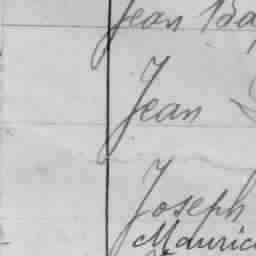 Jean Ba
Jean
Joseph
Mauric